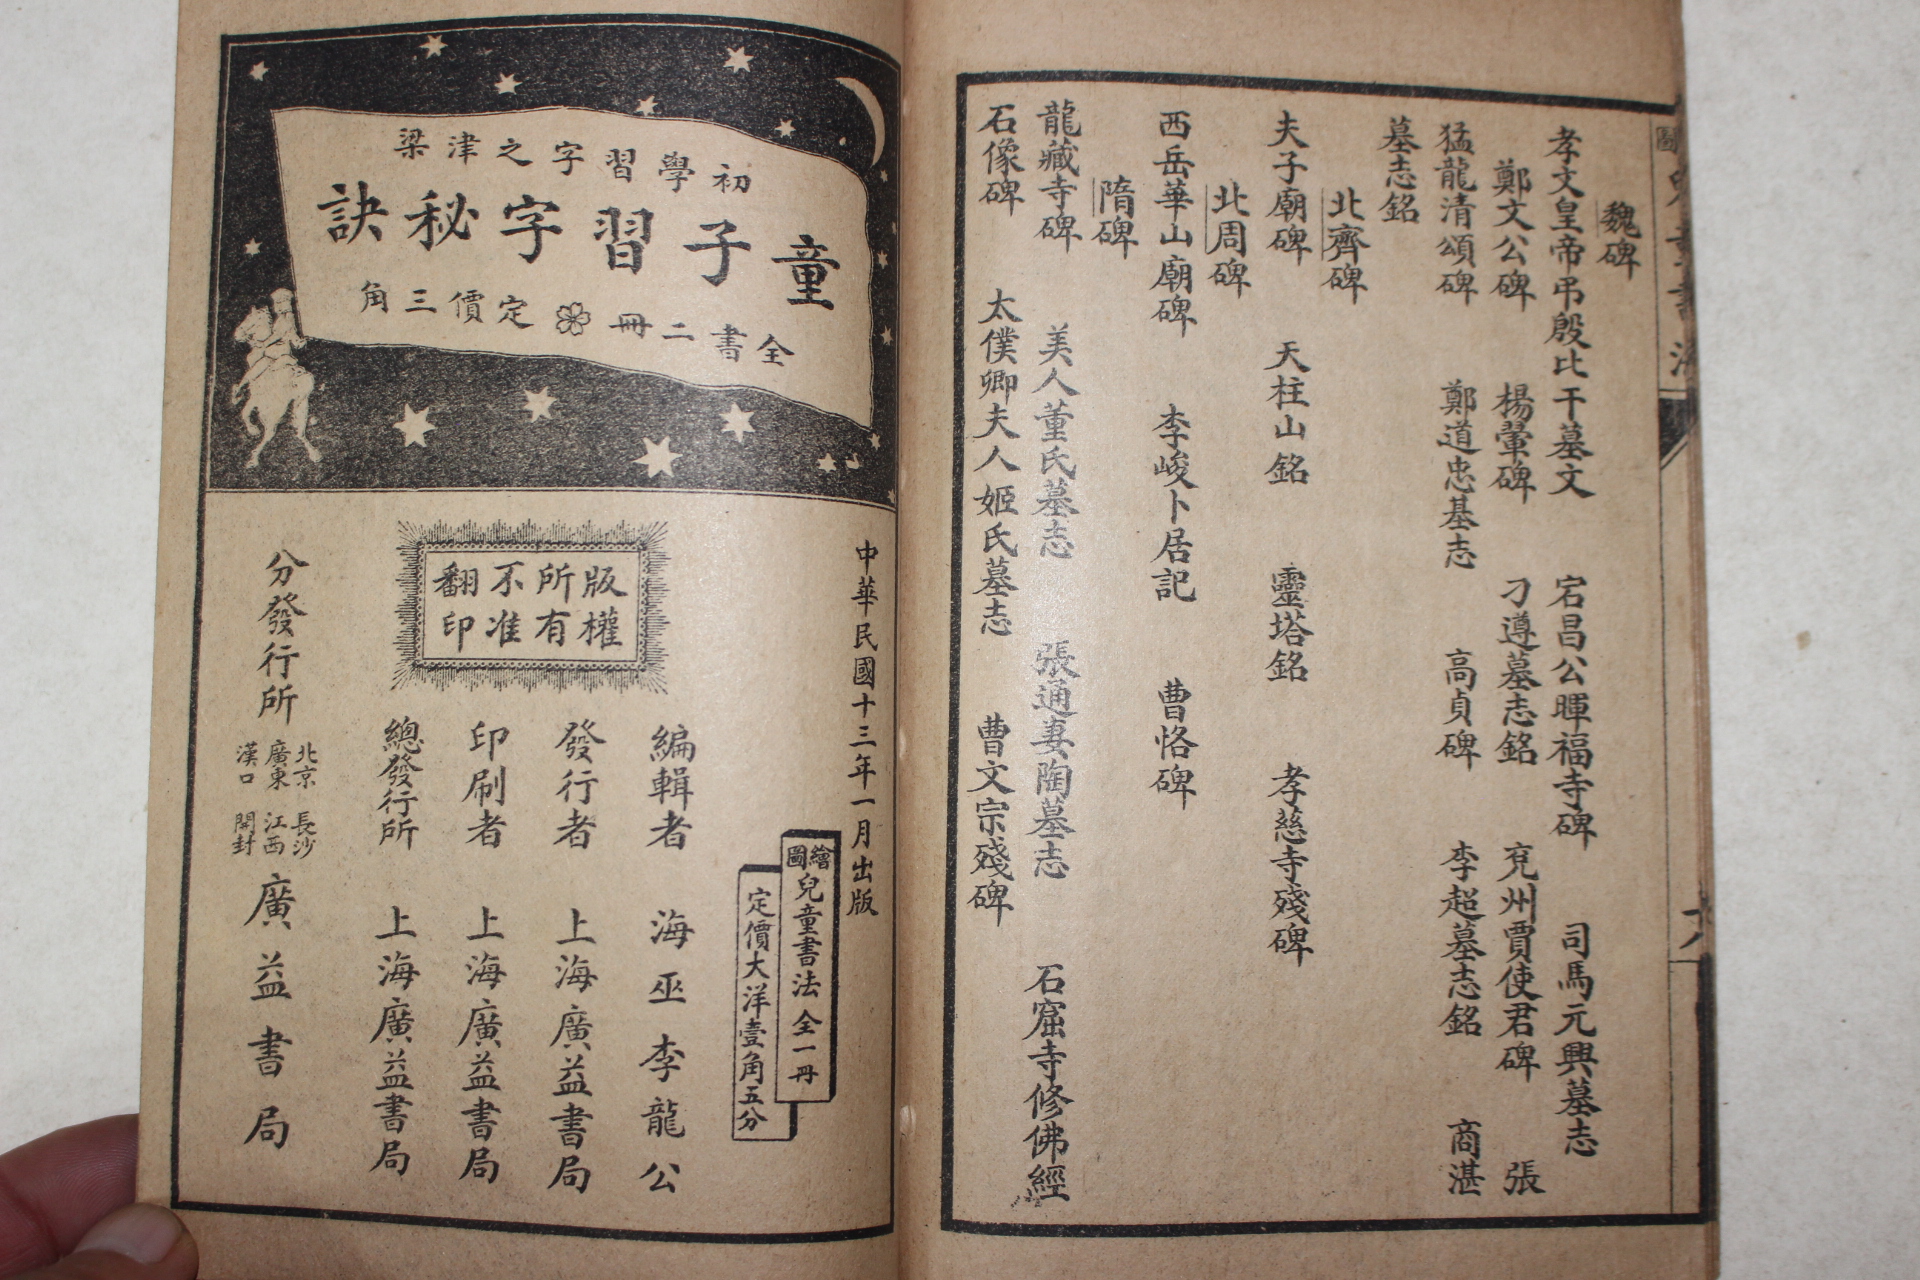 魏碑
孝文皇帝弔殷比干墓文　宕昌公暉福寺碑　司馬元興墓志
鄭文公碑　楊翬碑　刁遵墓志銘　兗州賈使君碑　張
猛龍清頌碑　鄭道忠墓志　高貞碑　李超墓志銘　商湛
墓志銘
北齊碑
夫子廟碑　天柱山銘　靈塔銘　孝慈寺殘碑
北周碑
西岳華山廟碑　李峻卜居記　曹恪碑
隋碑
龍藏寺碑　美人董氏墓志　張通妻陶墓志　石窟寺修佛經
石像碑　太僕卿夫人姬氏墓志　曹文宗殘碑
初學習字之津梁
童子習字秘訣
全書二冊　定價三角
中華民國十三年一月出版
繪圖兒童書法　全一冊
定價大洋壹角五分
版權所有
不准翻印
編輯者　海巫李龍公
發行者　上海廣益書局
印刷者　上海廣益書局
總發行所　上海廣益書局
分發行所　北京　廣東　漢口　長沙　江西　開封　廣益書局